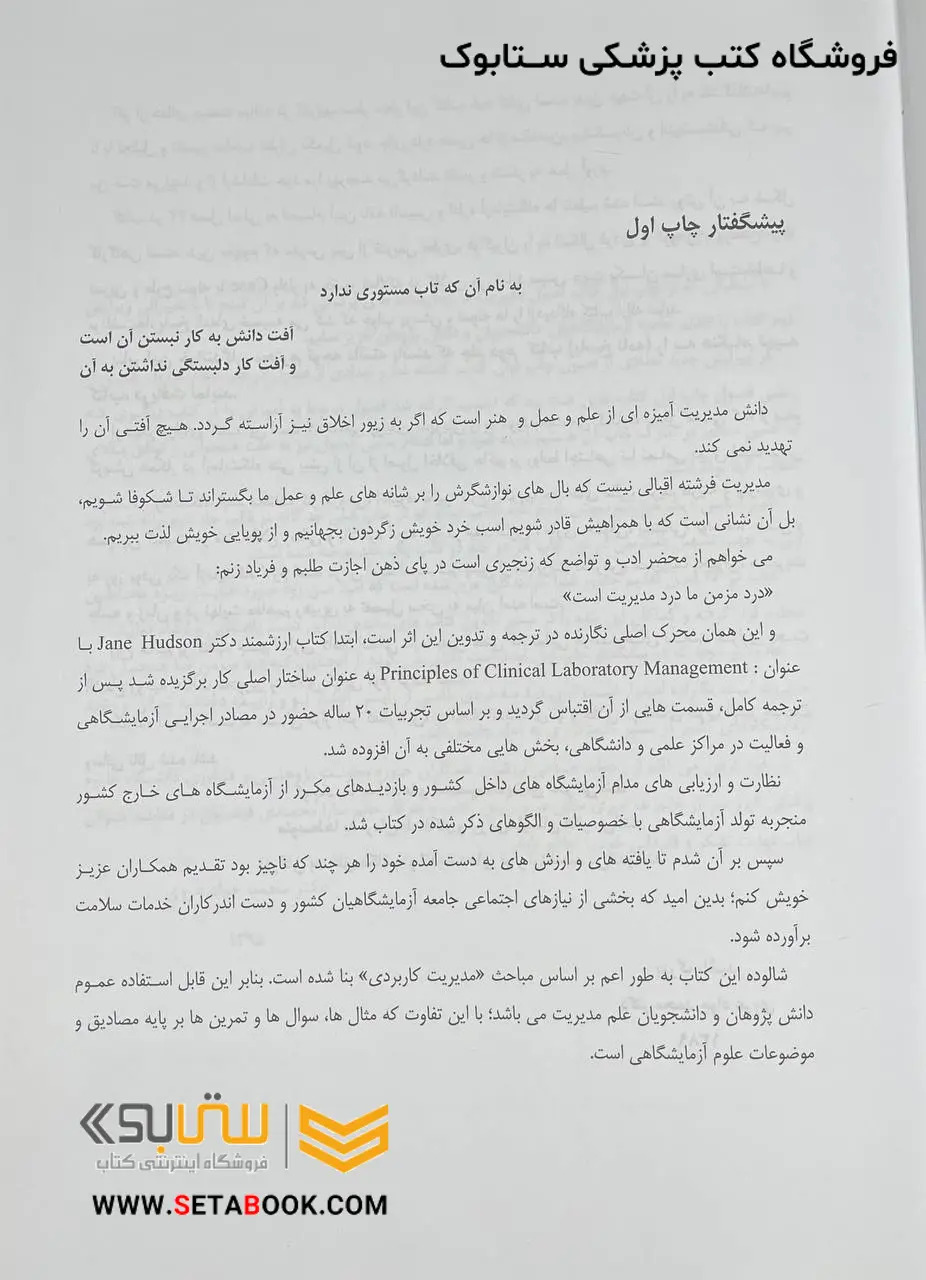 فروشگاه کتب پزشکی ستابوک
پیشگفتار چاپ اول
به نام آن که تاب مستوری ندارد
آفت دانش به کار نبستن آن است
و آفت کار دلبستگی نداشتن به آن
دانش مدیریت آمیزه ای از علم و عمل و هنر است که اگر به زیور اخلاق نیز آراسته گردد. هیچ آفتی آن را
تهدید نمی کند.
مدیریت فرشته اقبالی نیست که بال های نوازشگرش را بر شانه های علم و عمل ما بگستراند تا شکوفا شویم،
بل آن نشانی است که با همراهیش قادر شویم اسب خرد خویش زگردون بجهانیم و از پویایی خویش لذت ببریم.
می خواهم از محضر ادب و تواضع که زنجیری است در پای ذهن اجازت طلبم و فریاد زنم:
«درد مزمن ما درد مدیریت است»
و این همان محرک اصلی نگارنده در ترجمه و تدوین این اثر است، ابتدا کتاب ارزشمند دکتر Jane Hudson با
عنوان : Principles of Clinical Laboratory Management به عنوان ساختار اصلی کار برگزیده شد پس از
ترجمه کامل، قسمت هایی از آن اقتباس گردید و بر اساس تجربیات ۲۰ ساله حضور در مصادر اجرایی آزمایشگاهی
و فعالیت در مراکز علمی و دانشگاهی، بخش هایی مختلفی به آن افزوده شد.
نظارت و ارزیابی های مدام آزمایشگاه های داخل کشور و بازدیدهای مکرر از آزمایشگاه های خارج کشور
منجربه تولد آزمایشگاهی با خصوصیات و الگوهای ذکر شده در کتاب شد.
سپس بر آن شدم تا یافته های و ارزش های به دست آمده خود را هر چند که ناچیز بود تقدیم همکاران عزیز
خویش کنم؛ بدین امید که بخشی از نیازهای اجتماعی جامعه آزمایشگاهیان کشور و دست اندرکاران خدمات سلامت
برآورده شود.
شالوده این کتاب به طور اعم بر اساس مباحث «مدیریت کاربردی» بنا شده است. بنابر این قابل استفاده عموم
دانش پژوهان و دانشجویان علم مدیریت می باشد؛ با این تفاوت که مثال ها، سوال ها و تمرین ها بر پایه مصادیق و
موضوعات علوم آزمایشگاهی است.
ستابوک
فروشگاه اینترنتی کتاب
WWW.SETABOOK.COM